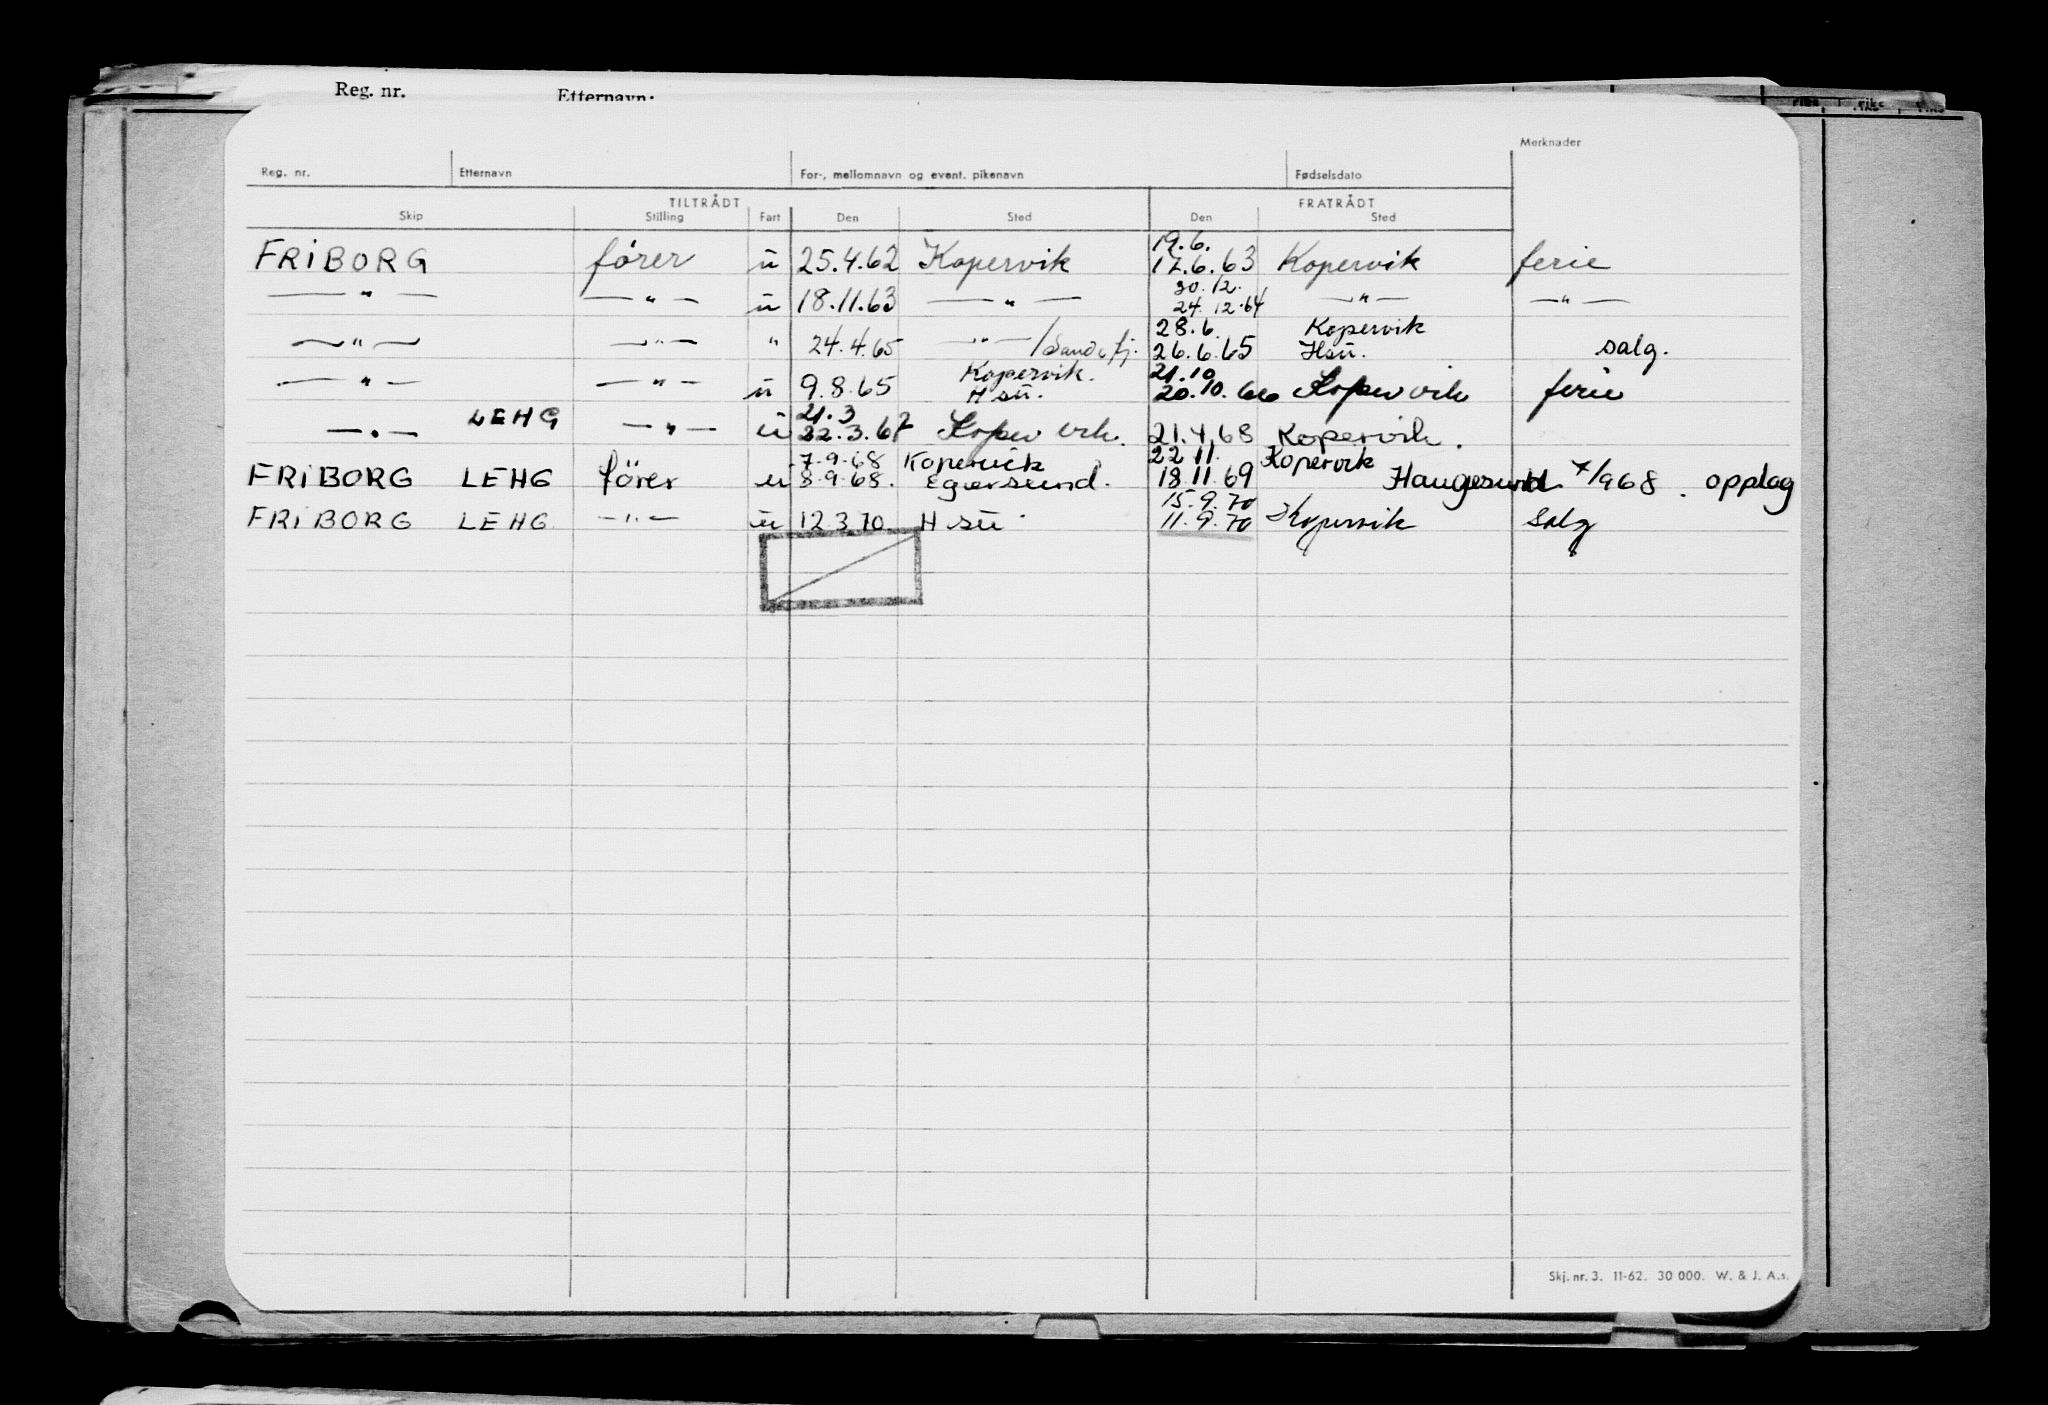 Reg. nr. Etternavn:
riks riks riks
Merknader
Reg. nr. Etternavn For-, mellomnavn og event. pikenavn Fødselsdato
TILTRÅDT FRATRÅDT
Skip Stilling Fart Den Sted Den Sted
19.6.
FRIBORG fører u 25.4.62 Kopervik 17.6.63 Kopervik ferie
30.12.
— " — — " — u 18.11.63 — " — 24.12.64 — " — — " —
28.6. Kopervik
— " — — " — " 24.4.65 — " — /Sandefj. 26.6.65 Hsu. salg.
Kopervik. 21.10
— " — — " — u 9.8.65 Hsu. 20.10.66 Kopervik ferie
LEHG 21.3
— " — — " — u 22.3.67 Kopervik. 21.4.68 Kopervik.
7.9.68 Kopervik 22 11. Kopervik
FRIBORG LEHG fører u 8.9.68. Egersund. 18.11.69 Haugesund 7/1968. opplag
15.9.70
FRIBORG LEHG — " — u 12.3.70. Hsu 11.9.70 Kopervik Salg
Skj. nr. 3. 11-62. 30 000. W. & J. A.s.